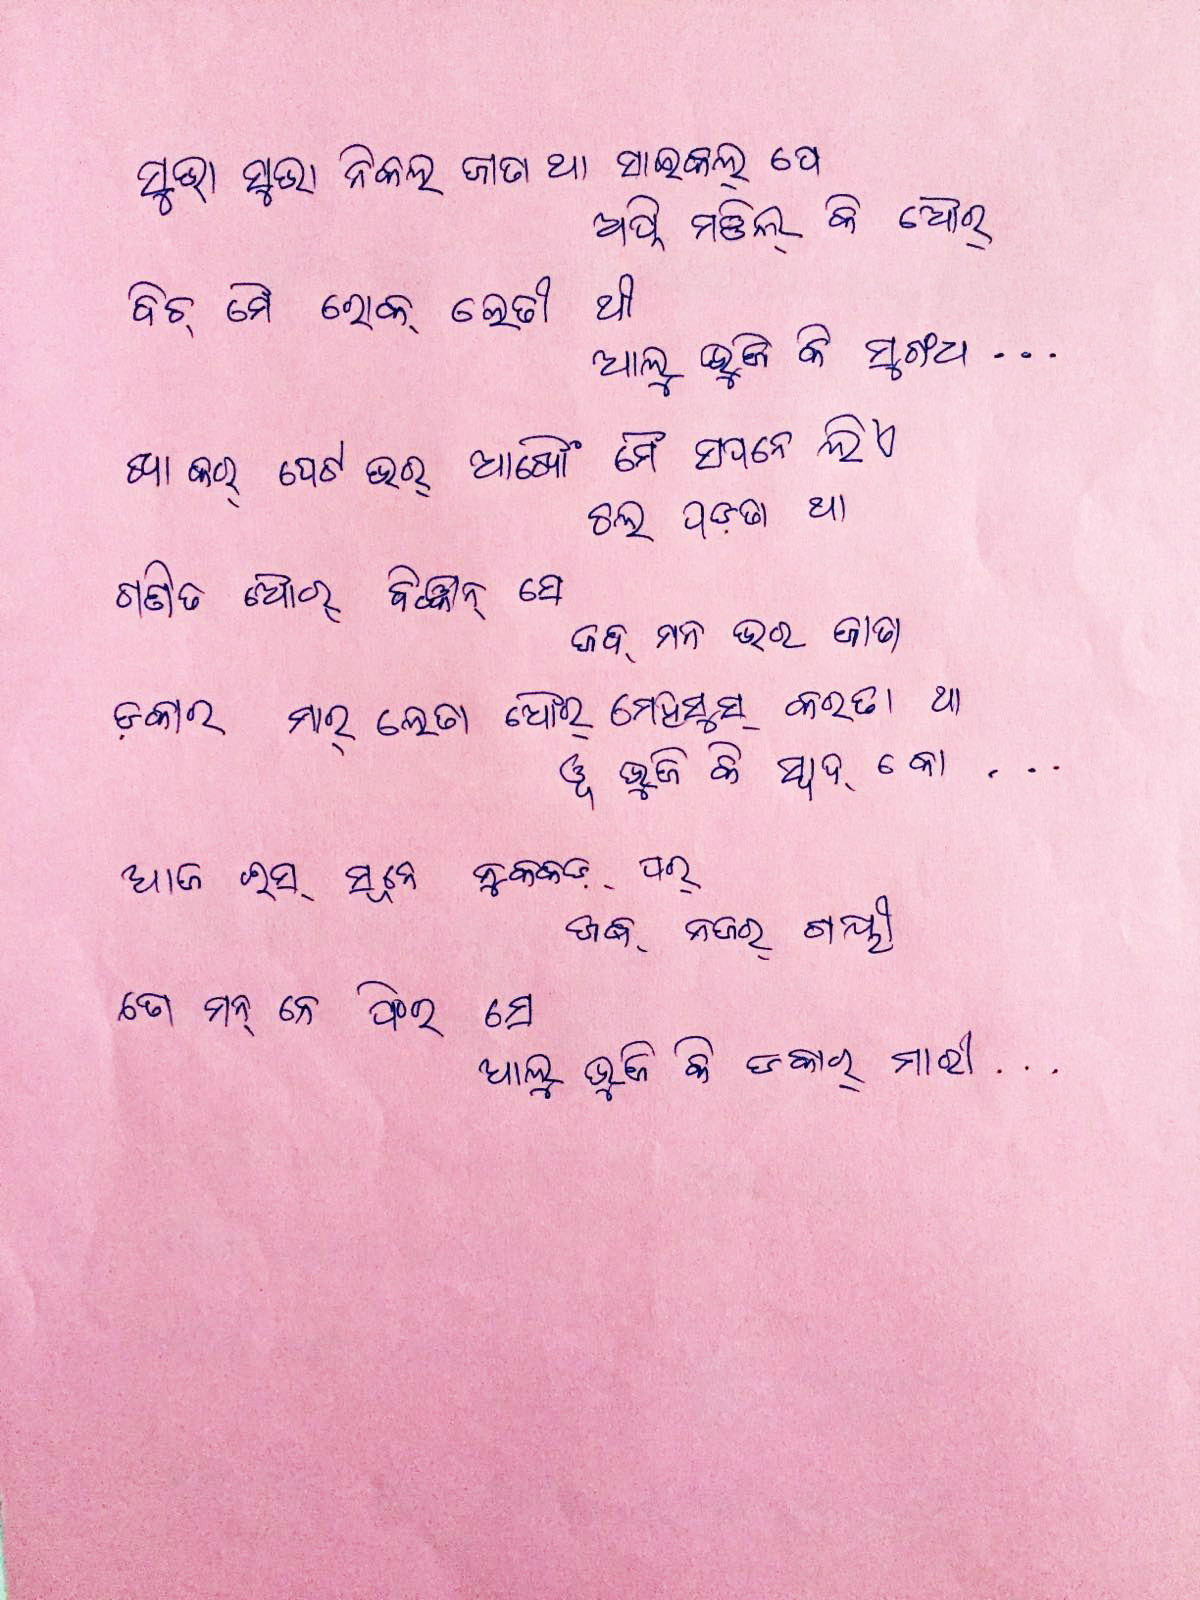 ସୁଭା ସୁଭା ନିକଲ ଜାତା ଥା ସାଇକଲ୍ ପେ
ଅପ୍ନି ମଞ୍ଜିଲ୍ କି ଔର୍
ବିଚ୍ ମୈ ରୋକ୍ ଲେତୀ ଥୀ
ଆଲୁ ଭୁଜି କି ସୁଗଂଧ ...
ଖା କର୍ ପେଟ ଭର୍ ଆଖୋଁ ମୈ ସପନେ ଲିଏ
ଚଲ ପଡ଼ତା ଥା
ଗଣିତ ଔର୍ ବିଜ୍ଞାନ୍ ସେ
ଜବ୍ ମନ ଭର ଜାତା
ଡ଼କାର ମାର୍ ଲେତା ଔର୍ ମେହସୁସ୍ କରତା ଥା
ଭୁଜି କି ସ୍ୱାଦ୍ କୋ ....
ଆଜ ଇସ୍ ସୂନେ ନୁକକଡ଼୍ ପର୍
ଜବ୍ ନଜର୍ ଗୟୀ
ତୋ ମନ୍ ନେ ଫିର ସେ
ଆଲୁ ଭୁଜି କି ଡକାର୍ ମାରୀ ...